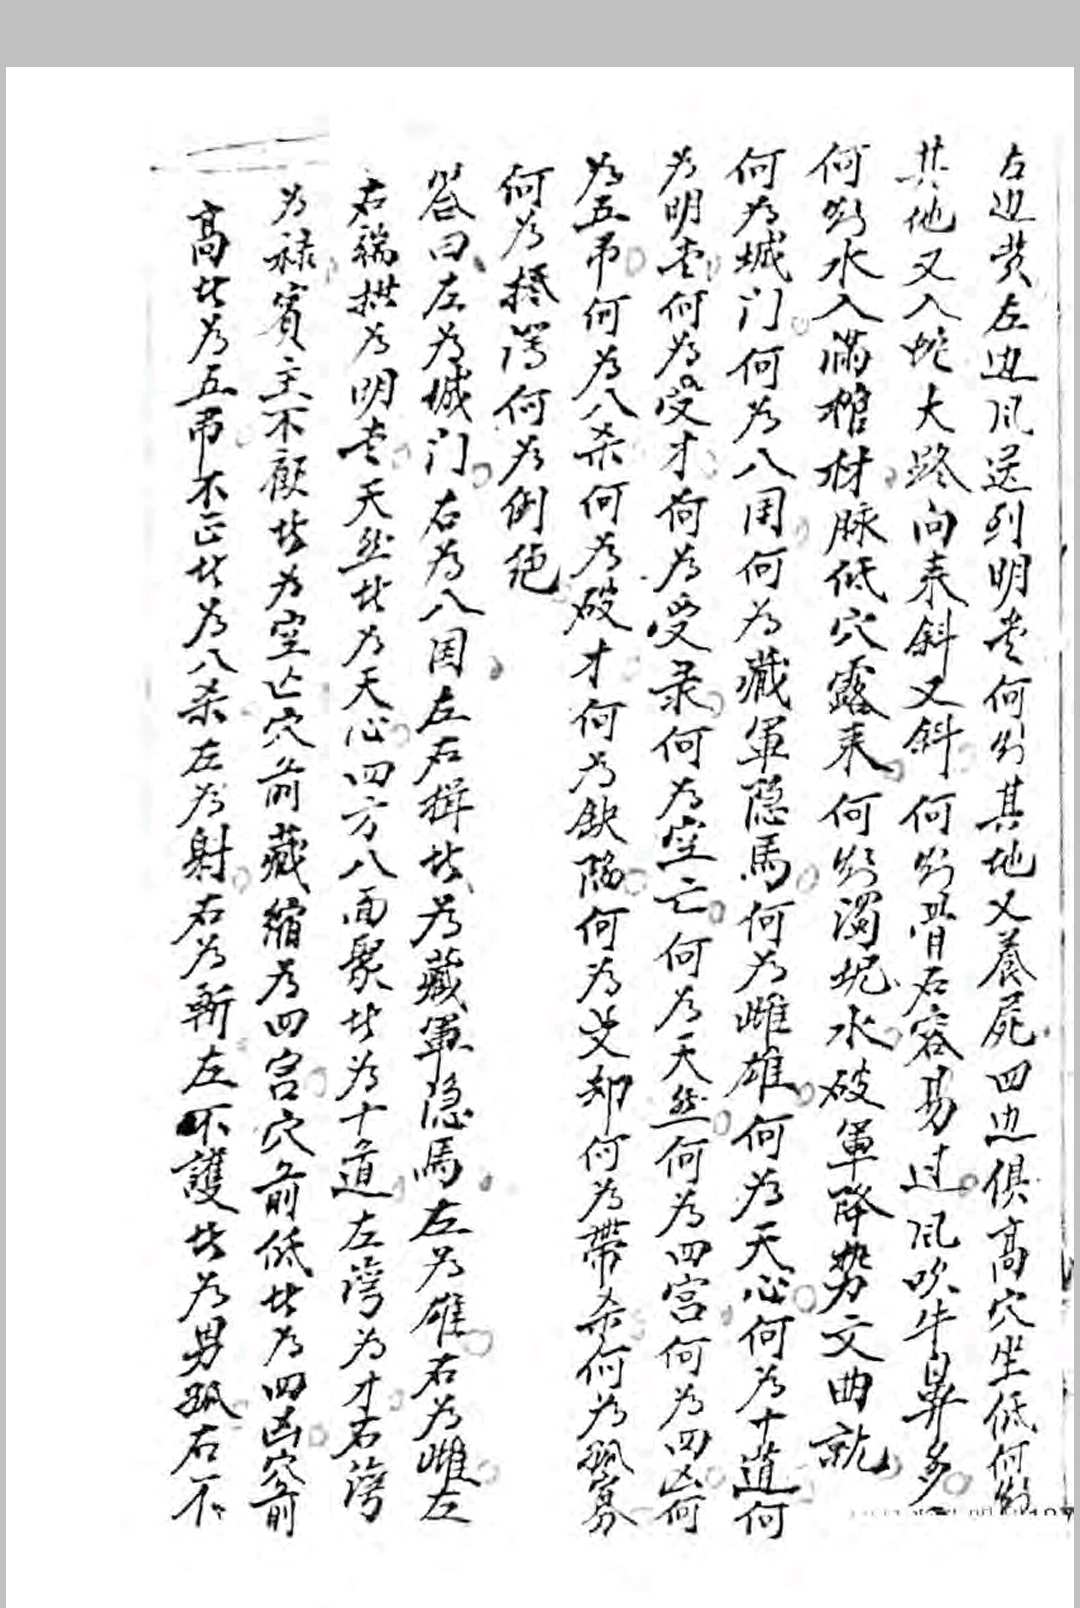 右边黄左边风送到明堂何斷其地又養屍四边俱高穴坐低何斷
其地又入蛇大路向来斜又斜何斷骨石容易过风吹牛鼻多
何斷水入滿棺材脉低穴露来何斷濁坭水破軍降势文曲就
何为城门何为八国何为藏軍隐馬何为雌雄何为天心何为十道何
为明堂何为受才何为受录何为空亡何为天然何为四宫何为四凶何
为五吊何为八杀何为破才何为缺陷何为却何为帶杀何为孤寡
何为何为倒绝
答曰左为城门右为八国左右揖拱为藏軍隐馬左为雄右为雌左
右端拱为明堂天然坟为天心四方八面聚坟为十道左湾为才右湾
为禄賓主不顧坟为空亡穴前藏縮为四宫穴前低坟为四凶穴前
高坟为五吊不正坟为八杀左为射右为斬左不護坟为男孤右不